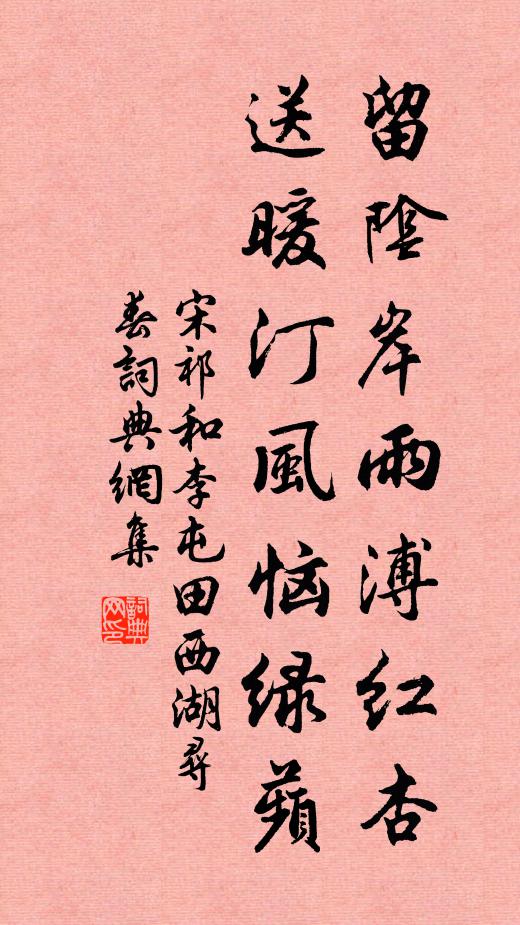 留陰岸雨溥红杏
送暖汀風恼绿蘋
宋祁和李屯田西湖尋
春詞典網集
詞典
网印